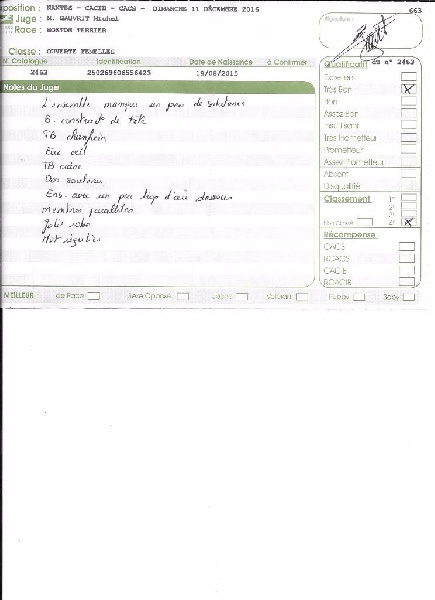 position : NANTES - CACIB - CACS - DIMANCHE 11 DÉCEMBRE 2016
663
Juge : M. GAUVRIT Michel
Signature :
Race : BOSTON TERRIER
Classe : OUVERTE FEMELLES
N° Catalogue Identification Date de Naissance à Confirmer
2463 250269606556423 19/08/2015
Qualificatif du n° 2463
Notes du Juge
Excellent
Très Bon X
Bon
Assez Bon
Insuffisant
Très Prometteur
Prometteur
Assez Prometteur
Absent
Disqualifié
L'ensemble manque un peu de
B. construction de tête
TB chanfrein
œil
TB
Bon
Ens. avec un peu trop d' dessous
membres parallèles
Jolie robe
Classement
1er
2e
3e
4e X
Récompense
CACS
RCACS
CACIB
RCACIB
MEILLEUR de Race Sexe Opposé Jeune Vétéran Puppy Baby